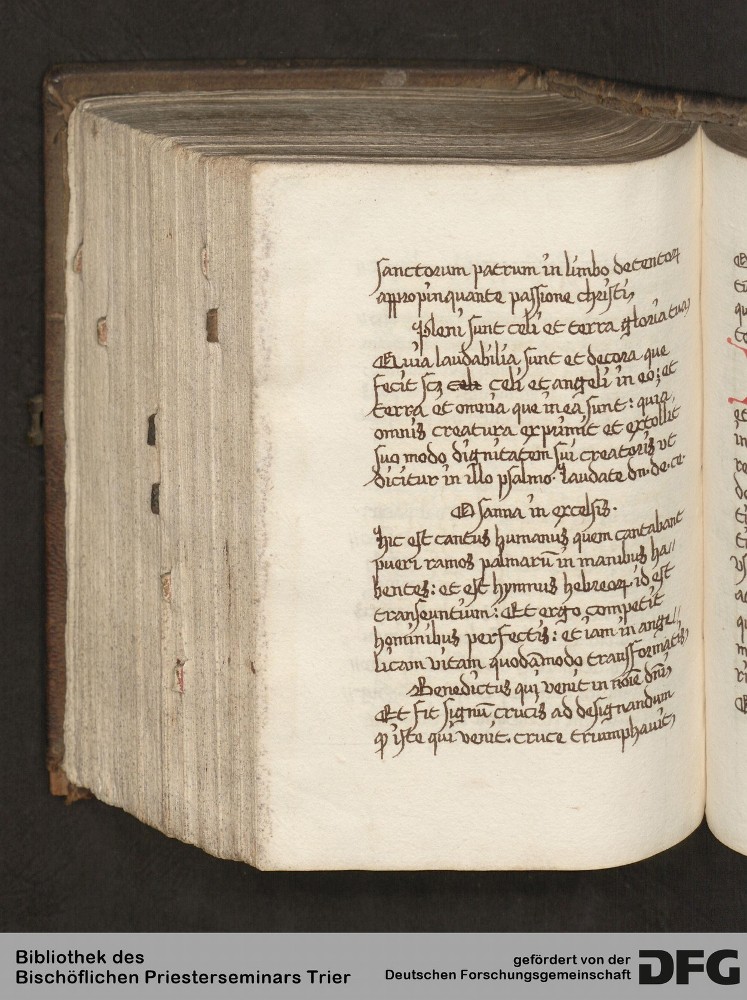 sanctorum patrum in limbo detentoꝝ
appropinquante passione christi
Pleni sunt celi et terra gloria tua
Quia laudabilia sunt et decora que
fecit scꝫ celi et angeli in eo: et
terra et omnia que in ea sunt: quia
omnis creatura exprimit et extollit
suo modo dignitatem sui creatoris vt
dicitur in illo psalmo. Laudate dn. de. ce.
Osanna in excelsis.
Hic est cantus humanus quem cantabant
pueri ramos palmarū in manibus ha//
bentes: et est hymnus hebreoꝝ. id est
transeuntium: Et ergo competit
hominibus perfectis: et iam in ange//
licam vitam quodāmodo transformatis
Benedictus qui venit in noīe dnī
Et fit signū crucis ad designandum
ꝙ iste qui venit. cruce triumphauit
Bibliothek des
Bischöflichen Priesterseminars Trier
gefördert von der
Deutschen Forschungsgemeinschaft
DFG